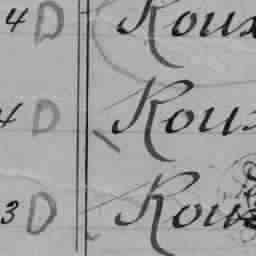 4 D Roux
4 D Roux
3 D Roux